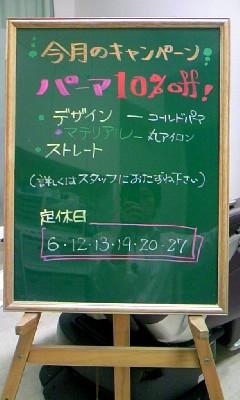 今月のキャンペーン
パーマ 10%off!
・デザイン ー コールドパーマ
・マテリアル 丸アイロン
・ストレート
(詳しくはスタッフにおたずね下さい)
定休日
6・12・13・19・20・27